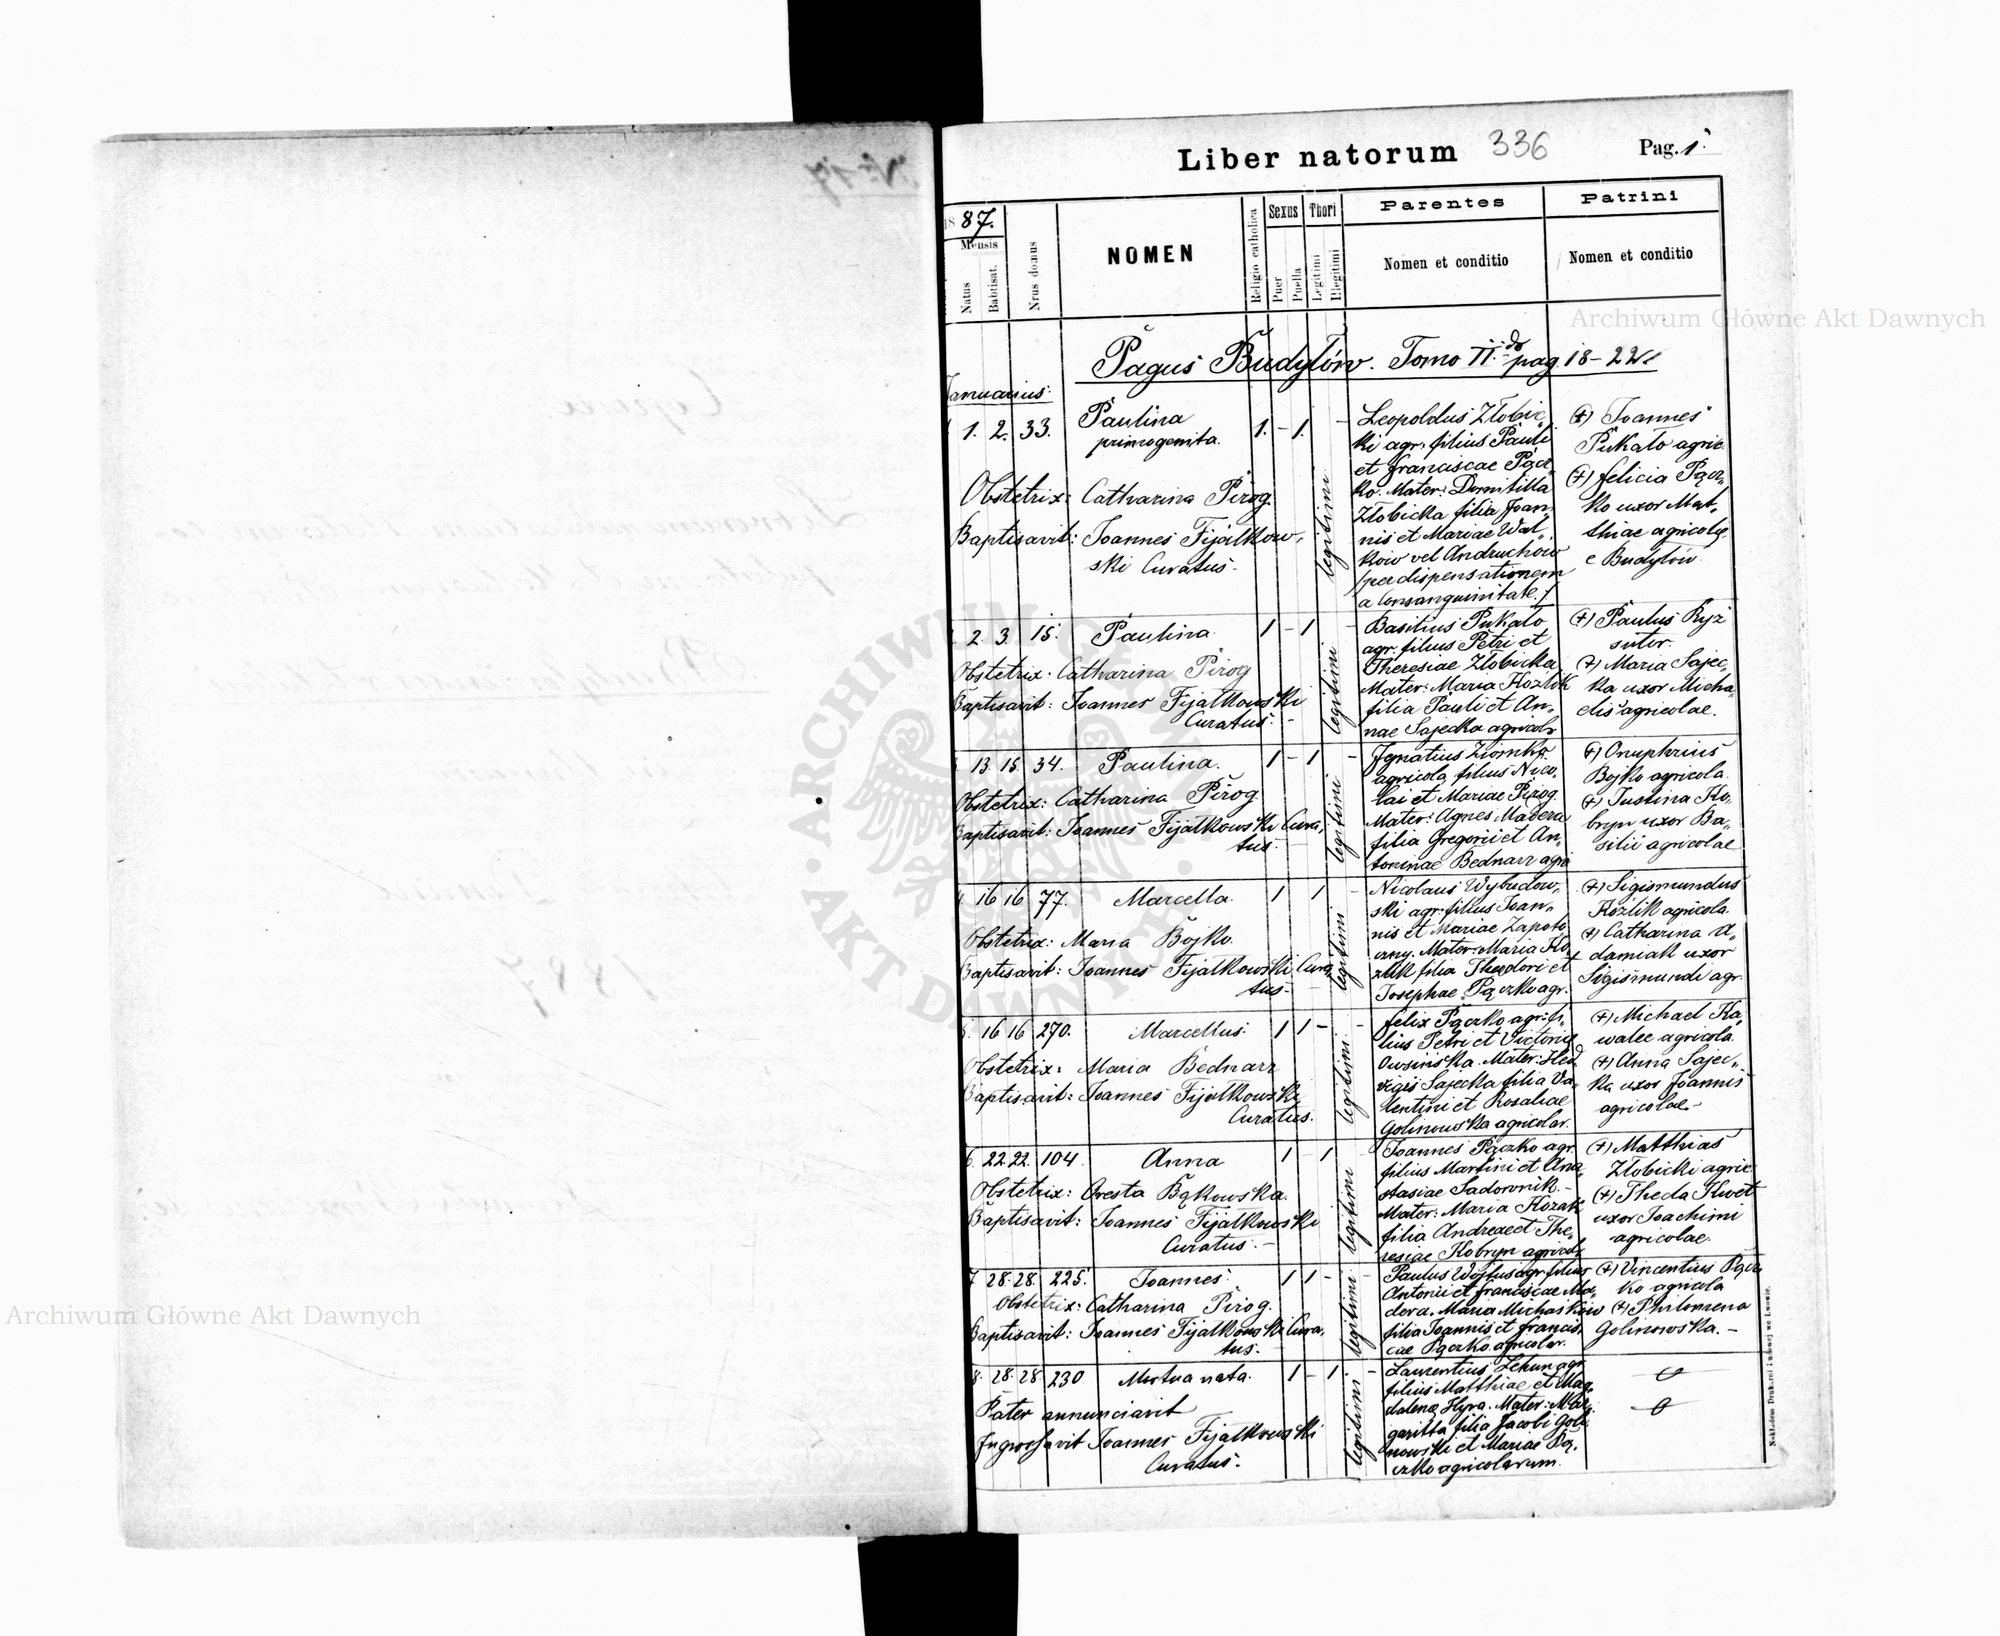 Liber natorum 336 Pag. 1.
1887.
Mensis
Natus
Babtisat.
Nrus domus
NOMEN
Religio catholica
Sexus
Puer
Puella
Thori
Legitimi
Illegitimi
Parentes
Nomen et conditio
Patrini
Nomen et conditio
Archiwum Główne Akt Dawnych
Pagus Budyłów. Tomo II.do pag. 18-22
Januarius:
1. 2. 33. Paulina
primogenita.
1. - 1. -
Obstetrix: Catharina Pirog.
Baptisavit: Joannes Fijałkow„
ski Curatus.-
legitimi
Leopoldus Złobic„
ki agr. filius Pauli
et Franciscae Pącz„
ko. Mater: Domitilla
Złobicka filia Joan„
nis et Mariae Wal„
ków vel Andruchow
/per dispensationem
a Consanguinitate./
(+) Joannes
Pukało agric.
(+) Felicia Pącz„
ko uxor Mat„
thiae agricolę
e Budyłów.
2. 3. 15. Paulina. 1 - 1 -
Obstetrix: Catharina Pirog
Baptisavit: Joannes Fijałkowski
Curatus.-
legitimi
Basilius Pukało
agr. filius Petri et
Theresiae Złobicka
Mater: Maria Kozlik
filia Pauli et An„
nae Sajecka agricolr.
(+) Paulus Ryż
sutor.
(+) Maria Sajec„
ka uxor Micha„
elis agricolae.
13. 15. 34. Paulina. 1 - 1 -
Obstetrix: Catharina Pirog.
Baptisavit: Joannes Fijałkowski Cura„
tus.-
legitimi
Ignatius Ziomko
agricola, filius Nico„
lai et Mariae Pirog.
Mater: Agnes Madera
filia Gregorii et An„
toninae Bednarz agri
(+) Onuphrius
Bojko agricola.
(+) Justina Ko„
bryn uxor Ba„
silii agricolae
16 16 77. Marcella. 1 1 -
Obstetrix: Maria Bojko.
Baptisavit: Joannes Fijałkowski Cura„
tus.-
legitimi
Nicolaus Wybudow„
ski agr. filius Joan„
nis et Mariae Zapoto„
czny. Mater: Maria Ko„
zlik filia Theodori et
Josephae Pączko agr.
(+) Sigismundus
Kozlik agricola.
(+) Catharina A„
damiak uxor
Sigismundi agr.
5. 16 16 270. Marcellus. 1 1 - -
Obstetrix: Maria Bednarz
Baptisavit: Joannes Fijałkowski
Curatus.
legitimi
Felix Pączko agr. fi„
lius Petri et Victoriae
Owsińska. Mater: Hed
vigis Sajecka filia Va„
lentini et Rosaliae
Golinowska agricolar.
(+) Michael Ko„
walec agricola.
(+) Anna Sajec„
ka uxor Joannis
agricolae.-
6. 22. 22. 104. Anna 1 - 1 -
Obstetrix: Oresta Bąkowska.
Baptisavit: Joannes Fijałkowski
Curatus.-
legitimi
Joannes Pączko agr.
filius Martini et Ana
stasiae Sadorornik.-
Mater: Maria Kozak
filia Andreae et The„
resiae Kobryn agricol.
(+) Matthias
Złobicki agric.
(+) Theda Kwet
uxor Joachimi
agricolae.
7. 28. 28. 225. Joannes. 1 1 - -
Obstetrix: Catharina Pirog.
Baptisavit: Joannes Fijałkowski Cura„
tus.-
legitimi
Paulus Wojtus agr. filius
Antonii et Franciscae Ma„
dera. Maria Michaśków
filia Joannis et Francis„
cae Pączko agricolar.
(+) Vincentius Pącz
ko agricola
(+) Philomena
Golinowska.-
8. 28. 28. 230 Mortua nata. 1 - 1. -
Pater annunciavit
Ingrossavit Joannes Fijałkowski
Curatus.-
legitimi
Laurentius Lehun agr.
filius Matthiae et Mag„
dalena Hyra. Mater: Mar„
garitta filia Jacobi Goli„
nowski et Mariae Pą„
czko agricolarum.
Nakładem Drukarni Ludowej we Lwowie.
Archiwum Główne Akt Dawnych
ARCHIWUM GŁÓWNE AKT DAWNYCH